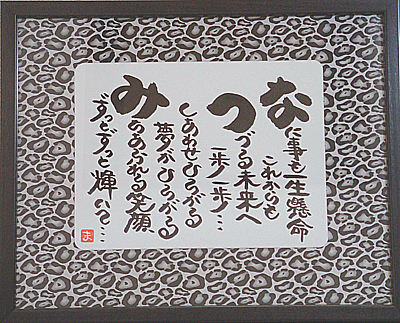 なに事も一生懸命
これからも
つづる未来へ
一歩一歩…
しあわせひろがる
夢がひろがる
みちあふれる笑顔
ずっとずっと輝いて…
ま